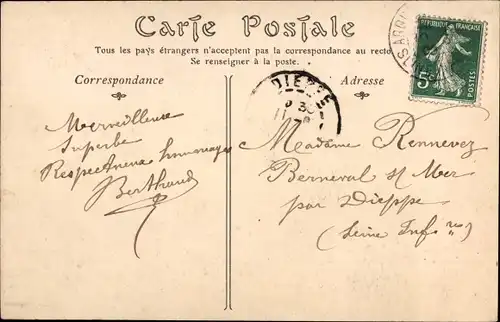 Carte Postale
Tous les pays étrangers n'acceptent pas la correspondance au recto
Se renseigner à la poste.
Correspondance
Adresse
RÉPUBLIQUE FRANÇAISE
5c
POSTES
DIEPPE
Merveilleux
Superbe
Respectueux hommages
Berthaud
Madame Rennevez
Berneval s/ Mer
par Dieppe
(Seine Infre)